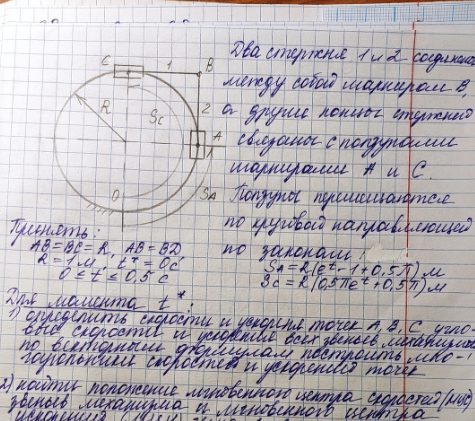 C
1
B
R
Sc
2
A
O
SA
Два стержня 1 и 2 соединены
между собой шарниром B,
а другие концы стержней
связаны с ползунами
шарнирами A и C.
Ползуны перемещаются
по круговой направляющей
по законам:
SA = R(e^t - 1 + 0,5π) м
Sc = R(0,5πe^t + 0,5π) м
Принять:
AB = BC = R, AB = BD
R = 1 м, t* = 0 с
0 ≤ t ≤ 0,5 с
Для момента t*:
1) определить скорости и ускорения точек A, B, C, угло-
вые скорости и ускорения всех звеньев механизма
по векторным формулам построить мно-
гоугольники скоростей и ускорений точек
2) найти положение мгновенного центра скоростей (МЦС)
звеньев механизма и мгновенного центра
ускорений